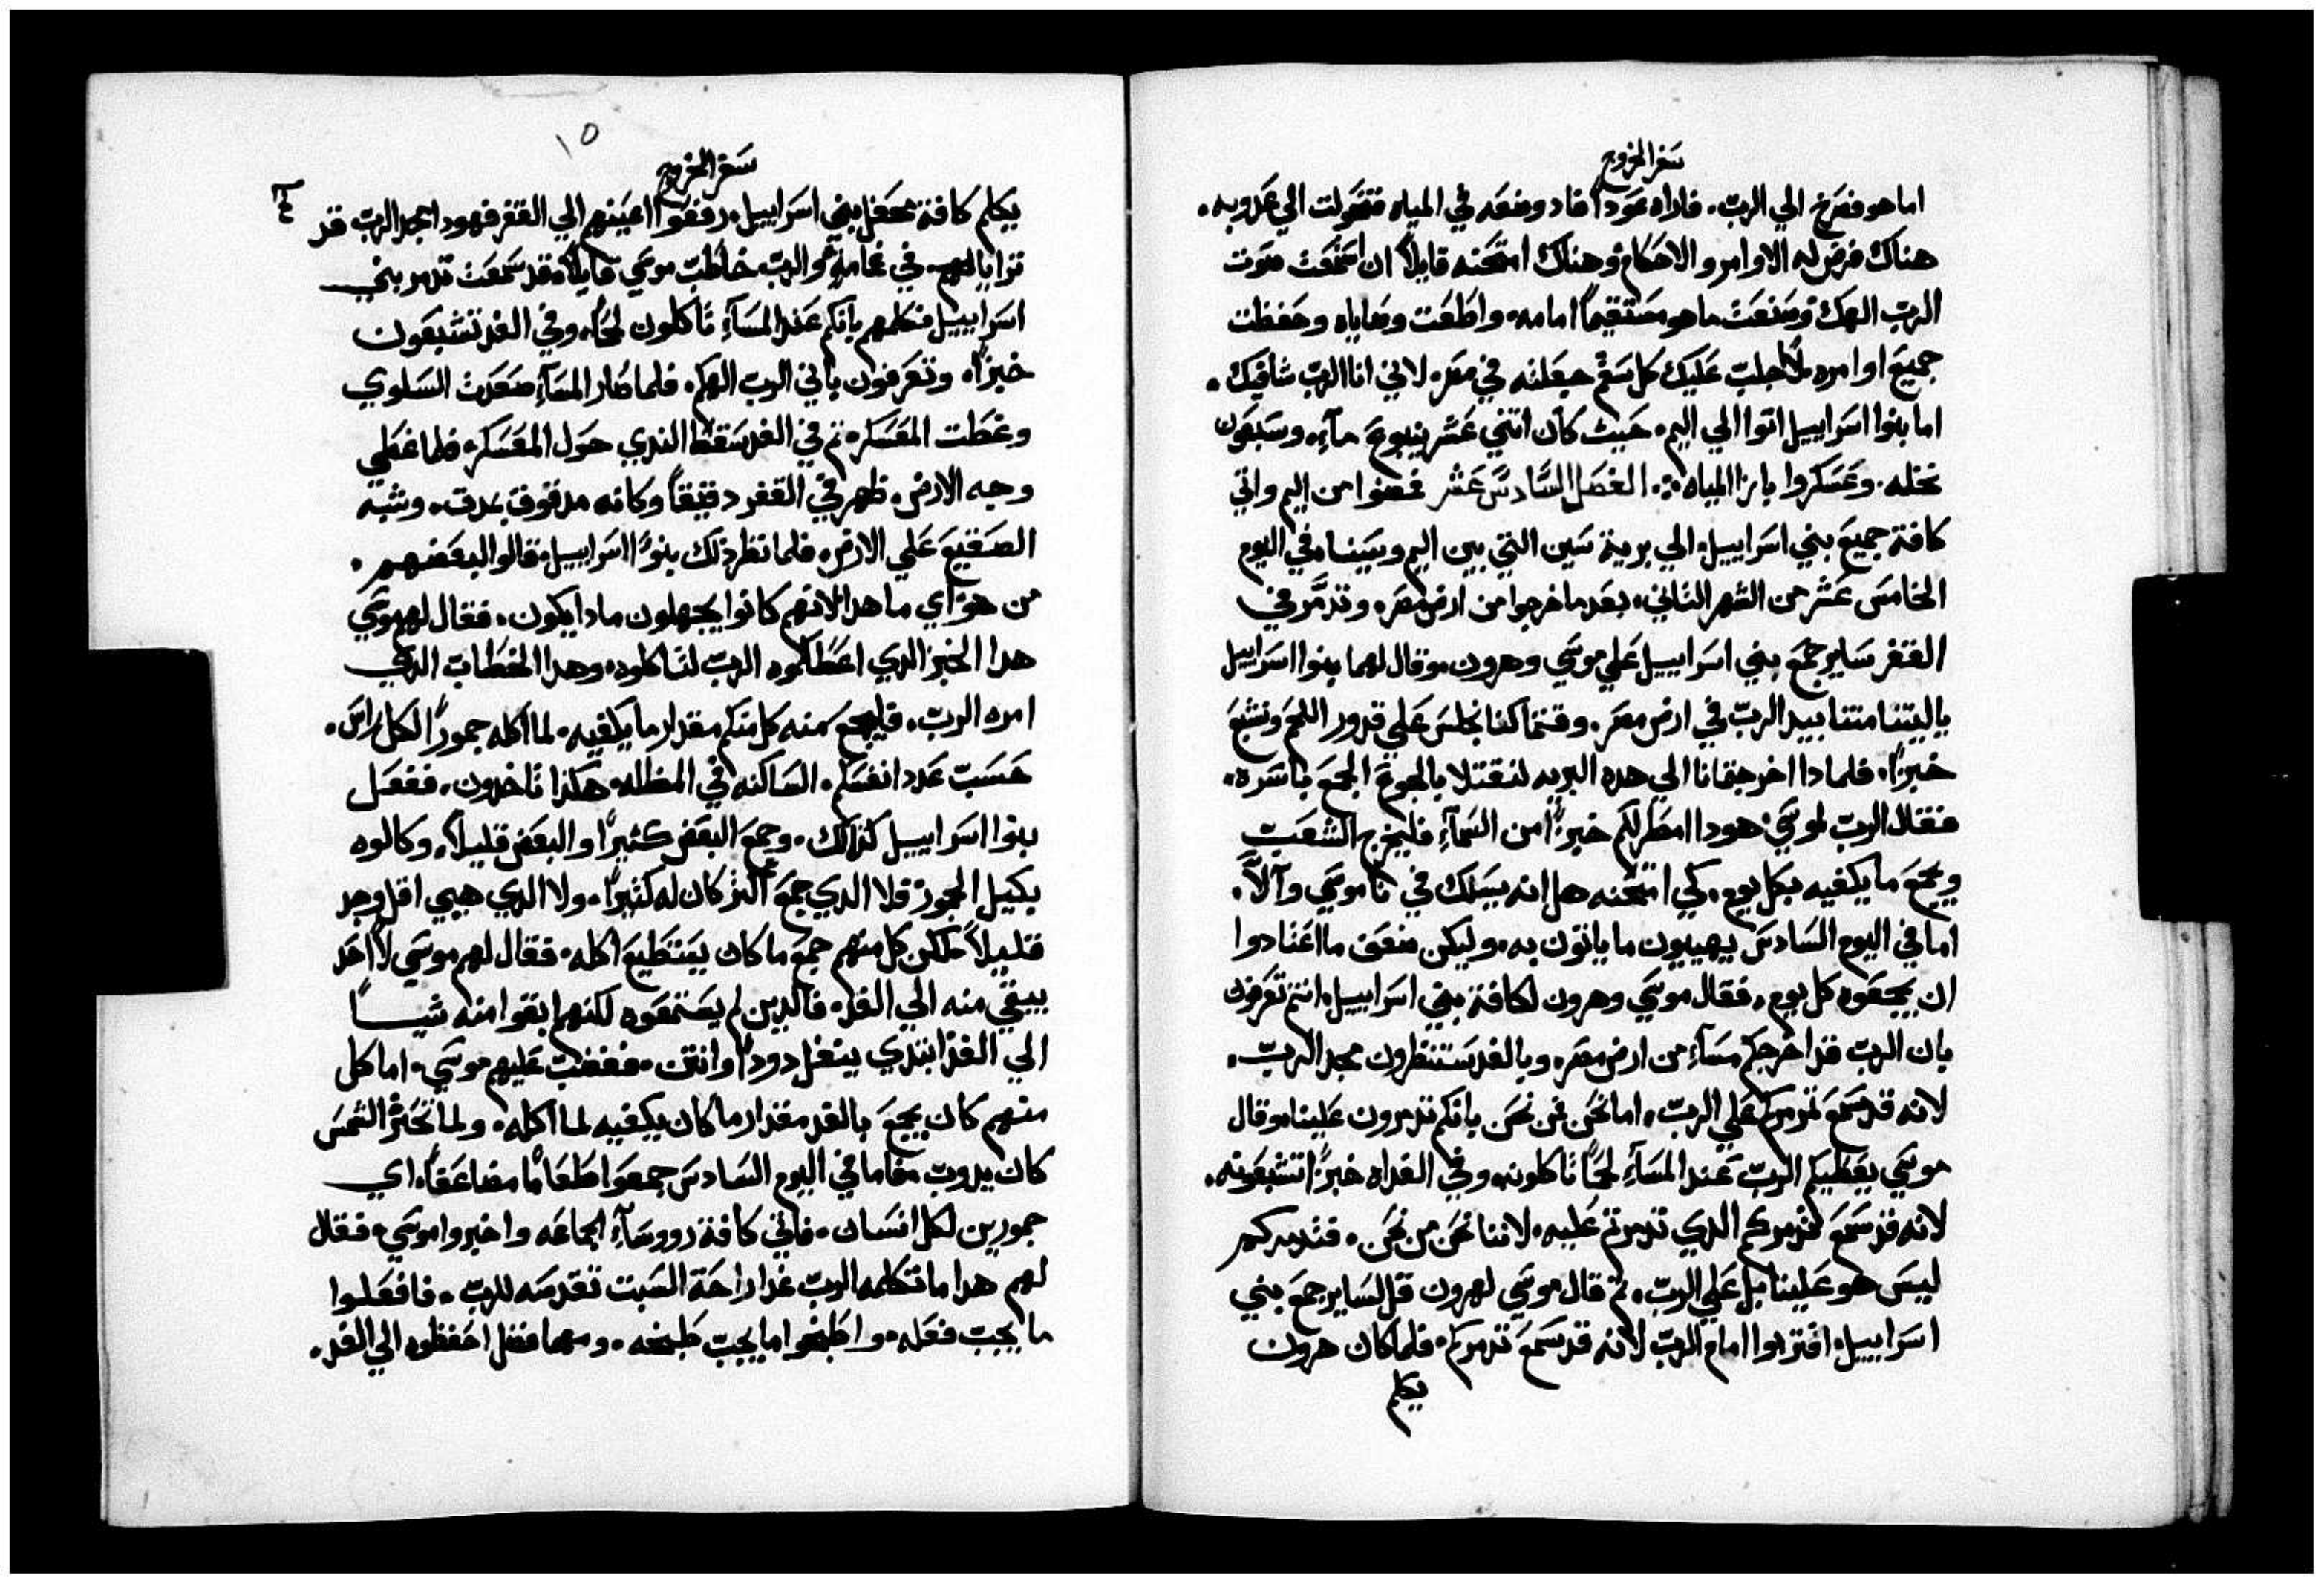 سفر الخروج
اما هو فصرخ الي الرب. فاراه عودا فاد وضعه في المياه فتحولت الي عدوبه.
هناك فرض له الاوامر والاحكام وهناك امتحنه قايلاً ان سمعت صوت
الرب الهك وصنعت ما هو مستقيماً امامه واطعت وصاياه وحفظت
جميع اوامره لا اجلب عليك كل سقم جعلته في مصر. لاني انا الرب شافيك.
اما بنوا اسراييل اتوا الي اليم. حيث كان اتني عشر ينبوع مآء. وسبعون
نخله. وعسكروا بازا المياه ⁘ الفصل السادس عشر فمضوا من اليم واتي
كافة جميع بني اسراييل الي برية سين التي بين اليم وسينا. في اليوم
الخامس عشر من الشهر التاني. بعد ما خرجوا من ارض مصر. وتدمر في
القفر ساير جمع بني اسراييل علي موسي وهرون. وقال لهما بنوا اسراييل
ياليتنا متنا بيد الرب في ارض مصر. وقتما كنا نجلس علي قدور اللحم ونشبع
خبزاً. فلمادا اخرجتمانا الي هده البريه لتقتلا بالجوع الجمع باسره.
فقال الرب لموسي هودا امطر لكم خبزاً من السمآء فليخرج الشعب
ويجمع ما يكفيه بكل يوم. كي امتحنه هل انه يسلك في ناموسي وآلآ.
اما في اليوم السادس يهييون ما ياتون به. وليكن ضعف ما اعتادوا
ان يجمعوه كل يوم. فقال موسي وهرون لكافة بني اسراييل. انتم تعرفون
بان الرب قد اخرجكم مسآء من ارض مصر. وبالغد ستنظرون مجد الرب.
لانه قد سمع تدمركم علي الرب. اما نحن فمن نحن بانكم تدمرون علينا. وقال
موسي يعطيكم الرب عند المسآء لحماً تاكلونه وفي الغداه خبزاً تشبعونه.
لانه قد سمع تدمركم الدي تدمرتم عليه. لاننا نحن من نحن. فتدمركم
ليس هو علينا بل علي الرب. تم قال موسي لهرون قل لساير جمع بني
اسراييل. اقتربوا امام الرب لانه قد سمع تدمركم. فلما كان هرون
يكلم
١٥
سفر الخروج
يكلم كافة محفل بني اسراييل. رفعوا اعينهم الي القفر فهودا مجد الرب قد
ترايا لهم في غمامة. والرب خاطب موسي قايلاً. قد سمعت تدمر بني
اسراييل فكلمهم بانكم عند المسآء تاكلون لحماً. وفي الغد تشبعون
خبزاً. وتعرفون باني الرب الهكم. فلما صار المسآء صعدت السلوي
وغطت المعسكر. تم في الغد سقط الندي حول المعسكر. فلما غطي
وجه الارض. ظهر في القفر دقيقاً وكانه مدقوق بمدق. وشبه
الصقيع علي الارض. فلما نظر دلك بنوا اسراييل. قالوا لبعضهم.
من هو اي ما هدا لانهم كانوا يجهلون مادا يكون. فقال لهم موسي
هدا الخبز الدي اعطاكموه الرب لتاكلوه. وهدا الخطاب الدي
امره الرب. فليجمع منه كل منكم مقدار ما يكفيه. لما اكله جموراً لكل راس.
حسب عدد انفسكم. الساكنه في المظله. هكذا تاخدون. ففعل
بنوا اسراييل كذالك. وجمع البعض كثيراً والبعض قليلاً. وكالوه
بكيل الجمور. فلا الدي جمع اكثر كان له كثيراً. ولا الدي هيي اقل وجد
قليلاً لكن كل منهم جمع ما كان يستطيع اكله. فقال لهم موسي لا احد
يبقي منه الي الغد. فالدين لم يستمعوه لكنهم ابقوا منه شيـــاً
الي الغد ابتدي ينغل دوداً وانتن. فغضب عليهم موسي. اما كل
منهم كان يجمع بالغد مقدار ما كان يكفيه لما اكله. ولما تحتر الشمس
كان يدوب. فاما في اليوم السادس جمعوا طعاماً مضاعفاً. اي
جمورين لكل انسان. فاتي كافة رووسآء الجماعه واخبروا موسي. فقال
لهم هدا ما تكلمه الرب غدا راحة السبت تقدسه للرب. فافعلوا
ما يجب فعله. واطبخوا ما يجب طبخه. ومهما فضل احفظوه الي الغد.